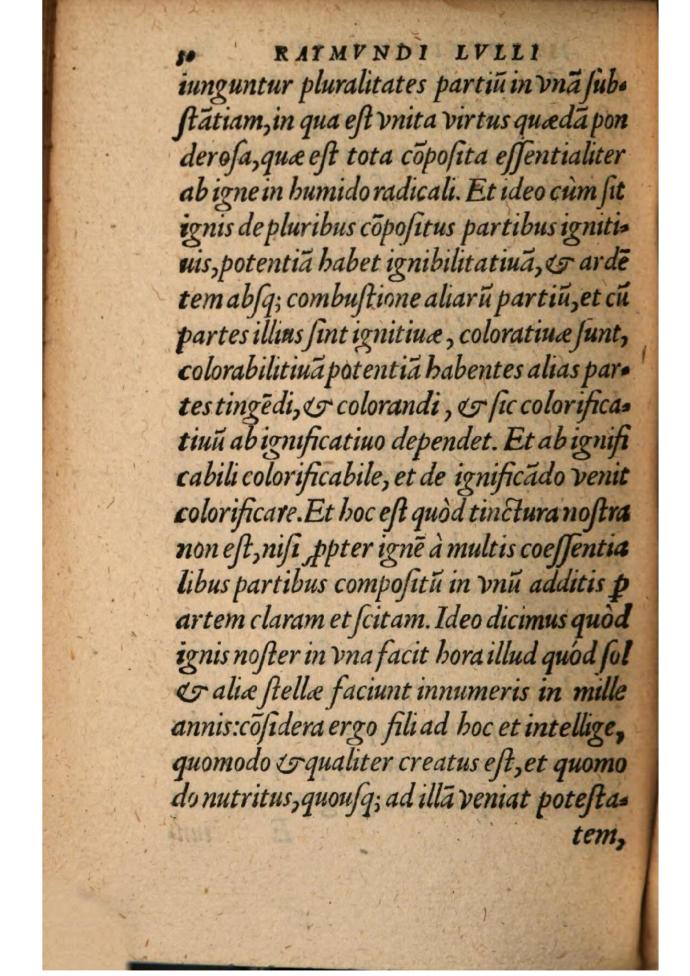 50 RAYMVNDI LVLLI
iunguntur pluralitates partiū in vnā ſub-
ſtātiam, in qua eſt vnita virtus quædā pon
deroſa, quæ eſt tota cōpoſita eſſentialiter
ab igne in humido radicali. Et ideo cùm ſit
ignis de pluribus cōpoſitus partibus igniti-
uis, potentiā habet ignibilitatiuā, & ardē
tem abſq; combuſtione aliarū partiū, et cū
partes illius ſint ignitiuæ, coloratiuæ ſunt,
colorabilitiuā potentiā habentes alias par-
tes tingēdi, & colorandi, & ſic colorifica-
tiuū ab ignificatiuo dependet. Et ab ignifi
cabili colorificabile, et de ignificādo venit
colorificare. Et hoc eſt quòd tinctura noſtra
non eſt, niſi ꝓpter ignē à multis coeſſentia
libus partibus compoſitū in vnū additis ꝑ
artem claram et ſcitam. Ideo dicimus quòd
ignis noſter in vna facit hora illud quòd ſol
& aliæ ſtellæ faciunt innumeris in mille
annis: cōſidera ergo fili ad hoc et intellige,
quomodo & qualiter creatus eſt, et quomo
do nutritus, quouſq; ad illā veniat poteſta-
tem,